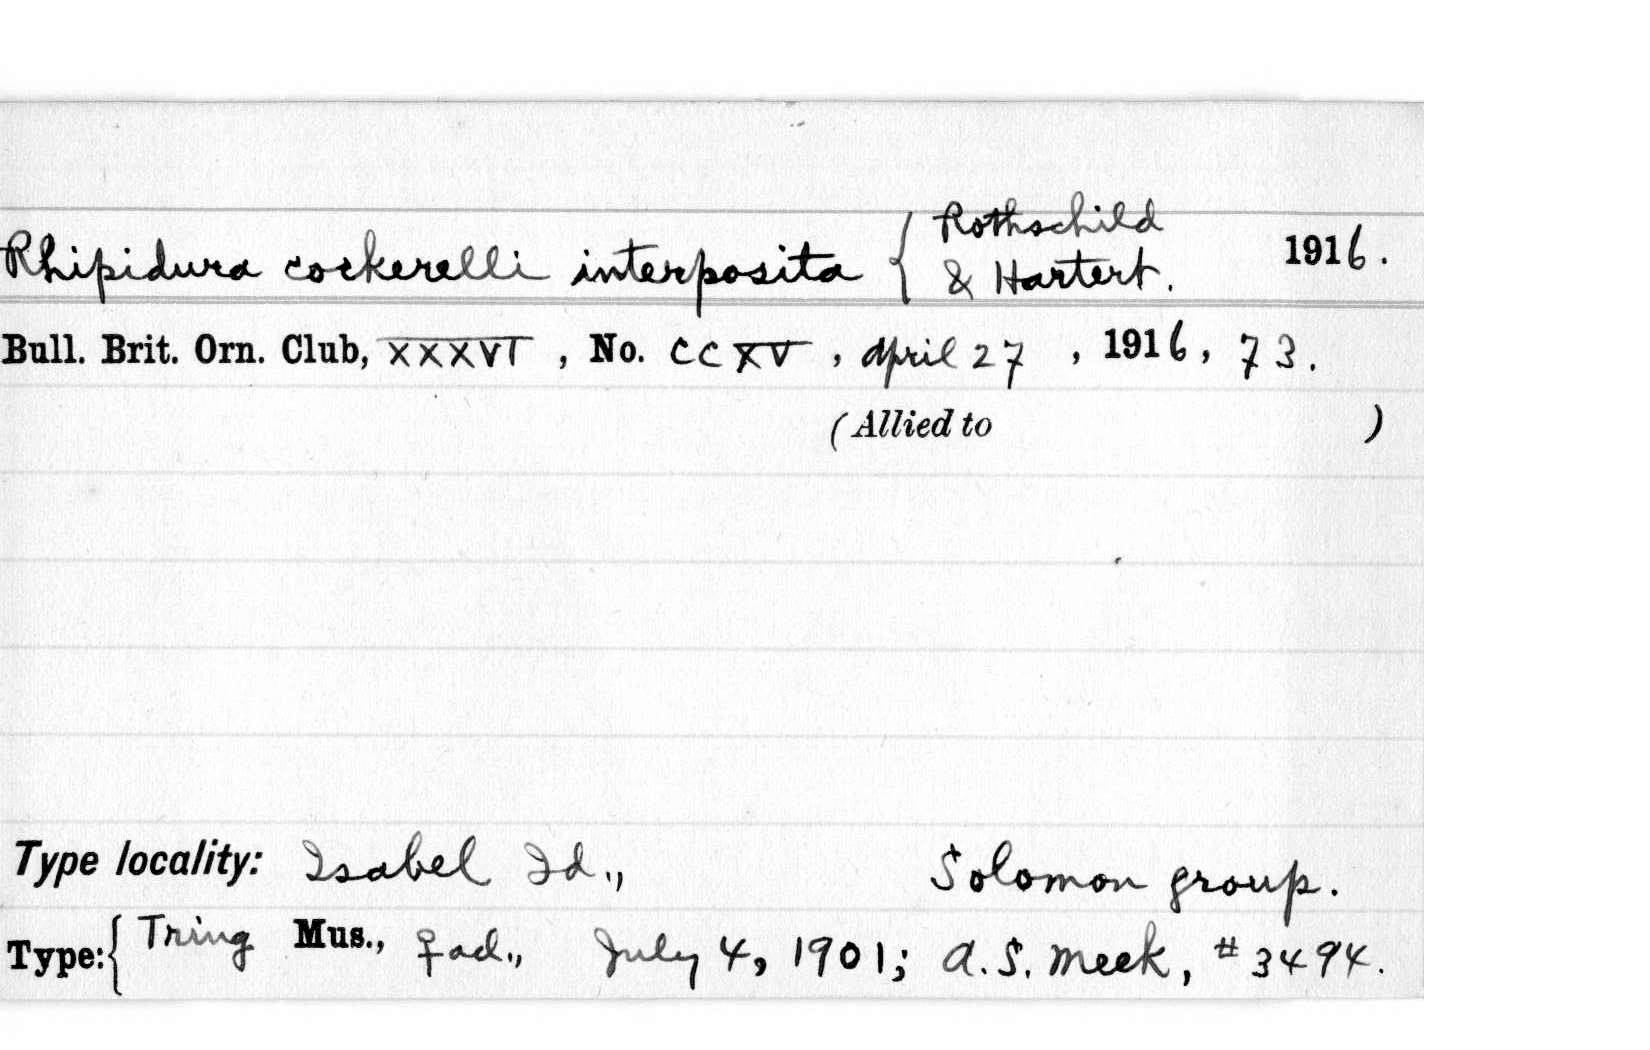 Rhipidura cockerelli interposita { Rothschild & Hartert. 1916.
Bull. Brit. Orn. Club, XXXVI, No. CCXV, April 27, 1916, 73.
(Allied to )
Type locality: Isabel Id., Solomon group.
Type: { Tring Mus., ♀ad., July 4, 1901; A.S. Meek, #3494.